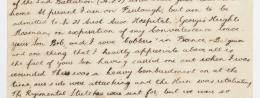 of the 2nd Battalion
home. At present I am on Furlough, but am to be
admitted to No 21 Aust. Aux. Hospital, Georges Heights
Mosman, on expiration of my convalescence leave.
Your Son Bob and I were "Cobbers" in France & Belgium
and one thing that I greatly appreciate above all is
the fact of your Son having called me out when I was
wounded. There was a heavy bombardment on at the
time, our side were attacking and the Huns was retaliating
The Regimental Stretchers were sent for, but we were so